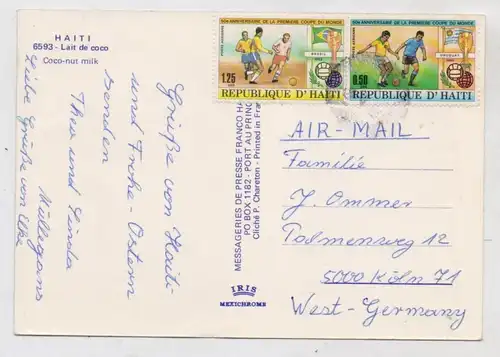 HAITI
6593 - Lait de coco
Coco-nut milk
50e ANNIVERSAIRE DE LA PREMIERE COUPE DU MONDE
BRASIL
1.25
REPUBLIQUE D'HAITI
50e ANNIVERSAIRE DE LA PREMIERE COUPE DU MONDE
URUGUAY
0.50
REPUBLIQUE D'HAITI
Grüße von Haiti
und Frohe-Ostern
senden
Thea und Linda
Liebe Grüße von Elke
MESSAGERIES DE PRESSE FRANCO HA
PO BOX 1182 - PORT AU PRINC
Cliché P. Chareton - Printed in Fran
IRIS
MEXICHROME
AIR-MAIL
Familie
J. Ommer
Tolmenweg 12
5000 Köln 71
West-Germany